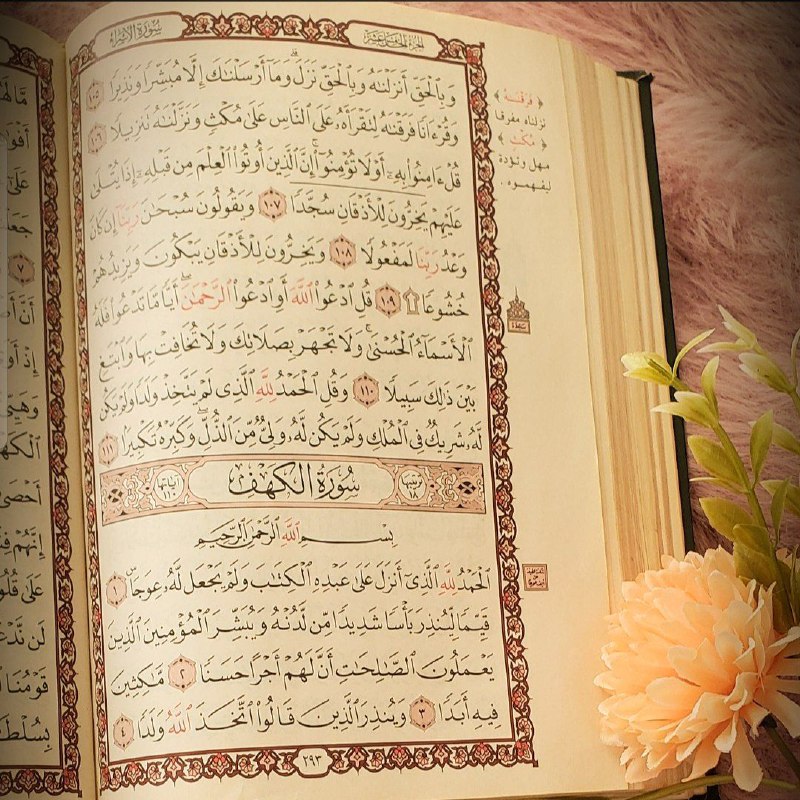 سُورَةُ الإِسْرَاءِ
الجُزْءُ الخَامِسَ عَشَرَ
وَبِالْحَقِّ أَنزَلْنَٰهُ وَبِالْحَقِّ نَزَلَ وَمَآ أَرْسَلْنَٰكَ إِلَّا مُبَشِّرًا وَنَذِيرًا ١٠٥
وَقُرْءَانًا فَرَقْنَٰهُ لِتَقْرَأَهُۥ عَلَى ٱلنَّاسِ عَلَىٰ مُكْثٍ وَنَزَّلْنَٰهُ تَنزِيلًا ١٠٦
قُلْ ءَامِنُوا۟ بِهِۦٓ أَوْ لَا تُؤْمِنُوٓا۟ إِنَّ ٱلَّذِينَ أُوتُوا۟ ٱلْعِلْمَ مِن قَبْلِهِۦٓ إِذَا يُتْلَىٰ
عَلَيْهِمْ يَخِرُّونَ لِلْأَذْقَانِ سُجَّدًا ١٠٧ وَيَقُولُونَ سُبْحَٰنَ رَبِّنَآ إِن كَانَ
وَعْدُ رَبِّنَا لَمَفْعُولًا ١٠٨ وَيَخِرُّونَ لِلْأَذْقَانِ يَبْكُونَ وَيَزِيدُهُمْ
خُشُوعًا ۩ ١٠٩ قُلِ ٱدْعُوا۟ ٱللَّهَ أَوِ ٱدْعُوا۟ ٱلرَّحْمَٰنَ أَيًّا مَّا تَدْعُوا۟ فَلَهُ
ٱلْأَسْمَآءُ ٱلْحُسْنَىٰ وَلَا تَجْهَرْ بِصَلَاتِكَ وَلَا تُخَافِتْ بِهَا وَٱبْتَغِ
بَيْنَ ذَٰلِكَ سَبِيلًا ١١٠ وَقُلِ ٱلْحَمْدُ لِلَّهِ ٱلَّذِى لَمْ يَتَّخِذْ وَلَدًا وَلَمْ يَكُن
لَّهُۥ شَرِيكٌ فِى ٱلْمُلْكِ وَلَمْ يَكُن لَّهُۥ وَلِىٌّ مِّنَ ٱلذُّلِّ وَكَبِّرْهُ تَكْبِيرًا ١١١
ترتيبها ١٨ سُورَةُ الْكَهْفِ آياتها ١١٠
بِسْمِ ٱللَّهِ ٱلرَّحْمَٰنِ ٱلرَّحِيمِ
ٱلْحَمْدُ لِلَّهِ ٱلَّذِىٓ أَنزَلَ عَلَىٰ عَبْدِهِ ٱلْكِتَٰبَ وَلَمْ يَجْعَل لَّهُۥ عِوَجَا ١
قَيِّمًا لِّيُنذِرَ بَأْسًا شَدِيدًا مِّن لَّدُنْهُ وَيُبَشِّرَ ٱلْمُؤْمِنِينَ ٱلَّذِينَ
يَعْمَلُونَ ٱلصَّٰلِحَٰتِ أَنَّ لَهُمْ أَجْرًا حَسَنًا ٢ مَّٰكِثِينَ
فِيهِ أَبَدًا ٣ وَيُنذِرَ ٱلَّذِينَ قَالُوا۟ ٱتَّخَذَ ٱللَّهُ وَلَدًا ٤
٢٩٣
﴿ فَرَقْنَٰهُ ﴾
نزلناه مفرقا
﴿ مُكْثٍ ﴾
مهل وتؤدة
ليفهموه.
سجدة